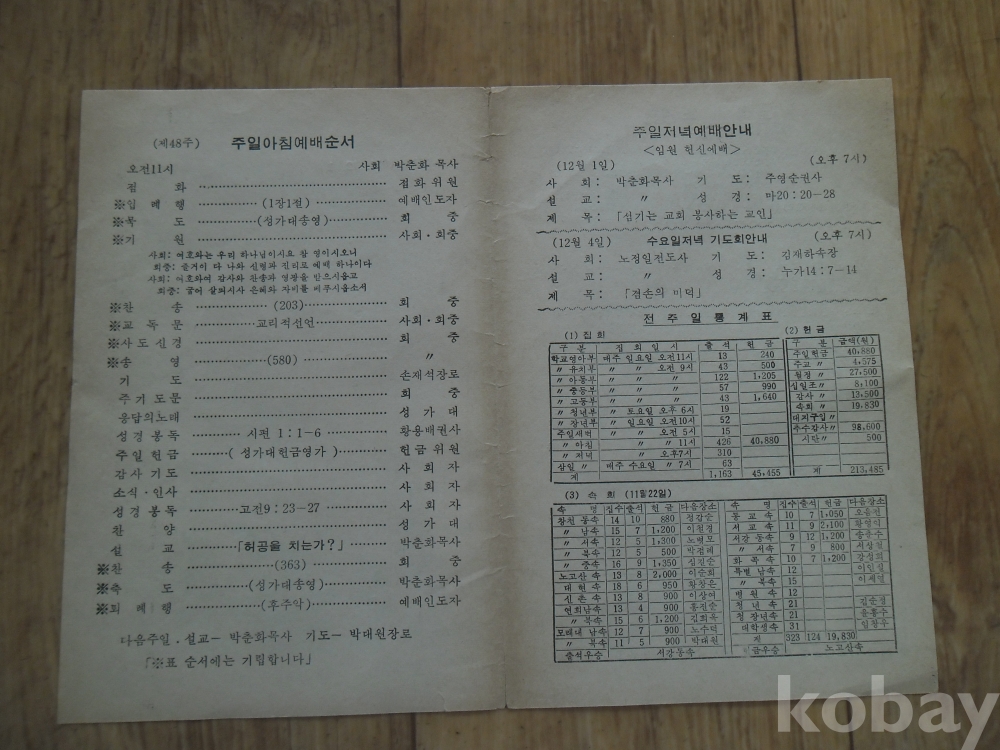 (제48주) 주일아침예배순서
오전11시 사회 박춘화 목사
점 화 점화위원
※입 례 행 (1장1절) 예배인도자
※묵 도 (성가대송영) 회 중
※기 원 사회·회중
사회: 여호와는 우리 하나님이시요 참 영이시오니
회중: 즐거이 다 나와 신령과 진리로 예배 하나이다
사회: 여호와여 감사와 찬송과 영광을 받으시옵고
회중: 굽어 살펴시사 은혜와 자비를 베푸시옵소서
※찬 송 (203) 회 중
※교 독 문 교리적선언 사회·회중
※사도신경 회 중
※송 영 (580) 〃
기 도 손재석장로
주기도문 회 중
응답의노래 성 가 대
성경봉독 시편 1:1-6 황용배권사
주일헌금 (성가대헌금영가) 헌금위원
감사기도 사 회 자
소식·인사 사 회 자
성경봉독 고전9:23-27 사 회 자
찬 양 성 가 대
설 교 「허공을 치는가?」 박춘화목사
※찬 송 (363) 회 중
※축 도 (성가대송영) 박춘화목사
※퇴 례 행 (후주악) 예배인도자
다음주일.설교- 박춘화목사 기도- 박대원장로
「※표 순서에는 기립합니다」
주일저녁예배안내
<임원 헌신예배>
(12월 1일) (오후 7시)
사 회: 박춘화목사 기 도: 주영순권사
설 교: 〃 성 경: 마20:20-28
제 목: 「섬기는 교회 봉사하는 교인」
(12월 4일) 수요일저녁 기도회안내 (오후 7시)
사 회: 노정일전도사 기 도: 김재하속장
설 교: 〃 성 경: 누가14:7-14
제 목: 「겸손의 미덕」
전 주 일 통 계 표
(1) 집 회
구 분 집 회 일 시 출 석 헌 금
학교영아부 매주 일요일 오전11시 13 240
〃 유치부 〃 〃 오전 9시 43 500
〃 아동부 〃 〃 〃 122 1,205
〃 중등부 〃 〃 〃 57 990
〃 고등부 〃 〃 〃 43 1,640
〃 청년부 〃 토요일 오후 6시 19
〃 장년부 〃 일요일 오전10시 52
주일새벽 〃 〃 오전 5시 15
〃 아침 〃 〃 〃 11시 426 40,880
〃 저녁 〃 〃 오후7시 310
삼일 〃 매주 수요일 〃 7시 63
계 1,163 45,455
(2) 헌 금
구 분 금액(원)
주일헌금 40,880
주교 〃 4,575
월정 〃 27,500
십일조〃 8,100
감사 〃 13,500
속회 〃 19,830
대지구입〃
추수감사〃 98,600
500
계 213,485
(3) 속 회 (11월22일)
속 명 집수 출석 헌 금 다음장소
창천 동속 14 10 880
〃 남속 15 7 1,200 이천경
〃 서속 12 5 1,300
〃 북속 12 5 500
〃 중속 16 9 1,350
노고산 속 13 8 2,000 이순희
대 현 속 18 6 950 황창은
신 촌 속 13 8 900 이상여
연희남속 13 4 900 홍진순
〃 북속 15 6 1,200 김희옥
모래내 남속 12 7 900 노수덕
〃 북속 11 5 900 박대원
출석우승 서강동속
속 명 집수 출석 헌금 다음장소
동 교 속 10 7 1,050
서 교 속 11 9 2,100
서강 동속 9 12 1,200
〃 서속 7 9 800
화 목 속 10 7 1,200
특별 남속 12
〃 북속 15
병 원 속 12
청 년 속 21 김순경
청 장년속 21
대학생속 31 임창우
계 323 124 19,830
헌금우승 노고산속
kobay